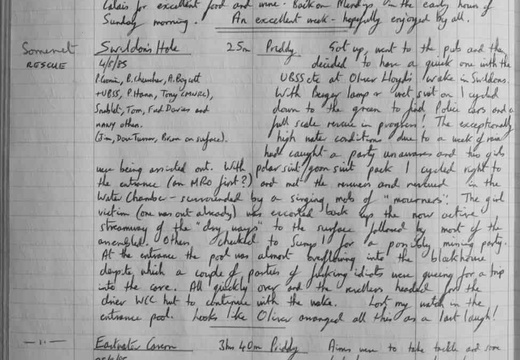 Calais for excellent food and wine. Back on Mendip in the early hours of
Sunday morning. An excellent week - hopefully enjoyed by all.
Somerset Swildon's Hole 25m Priddy Got up, went to the pub and then
RESCUE 4/5/85 decided to have a quick one with the
B. Chamber, A. Boycott UBSS etc at Oliver Lloyd's wake in Swildons.
+ UBSS, P. Hann, Tony With lamp + wet suit on I cycled
Tom, Davies and down to the green to find Police cars and a
many others. full scale rescue in progress! The exceptionally
(Jim, Dave Turner, on surface). high water conditions due to a week of rain
had caught a party unawares and two girls
were being assisted out. With suit pack I cycled right to
the entrance (an MRO first?) and met the rescuers and rescued in the
Water Chamber - surrounded by a singing mob of "mourners". The girl
victim (one was out already) was escorted back up the now active
streamway of the "dry ways" to the surface followed by most of the
assembled. Others checked to Sump 1 for a possibly missing party.
At the entrance the pool was almost overflowing into the blockhouse
despite which a couple of parties of fucking idiots were queuing for a trip
into the cave. All quickly over and the rescuers headed for the
drier WCC hut to continue with the wake. Lost my watch in the
entrance pool. Looks like Oliver arranged all this as a last laugh!
Eastwater Cavern 3hrs 40m Priddy Aims were to take tackle and some